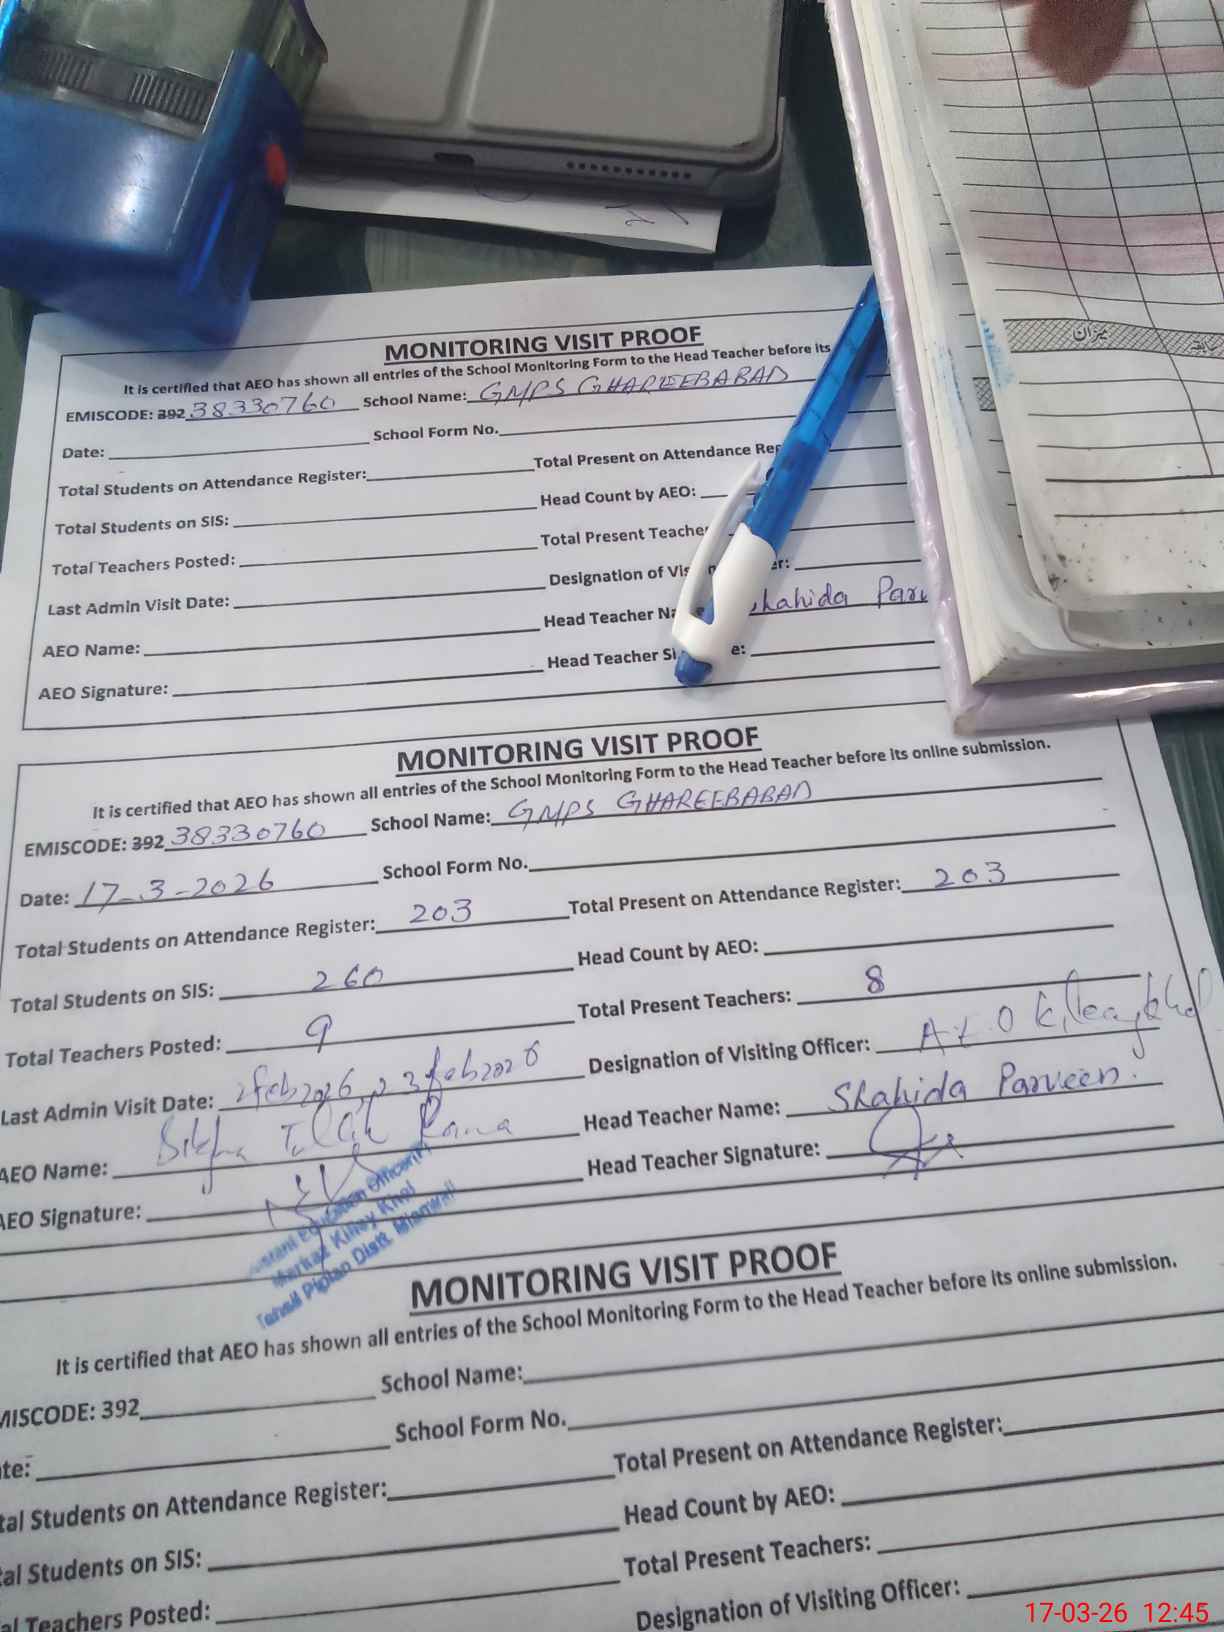 MONITORING VISIT PROOF
It is certified that AEO has shown all entries of the School Monitoring Form to the Head Teacher before its
EMISCODE: 392 38330760 School Name: GMPS GHAREEBABAD
Date: School Form No.
Total Students on Attendance Register: Total Present on Attendance Reg
Total Students on SIS: Head Count by AEO:
Total Teachers Posted: Total Present Teache
Last Admin Visit Date: Designation of Vis er:
AEO Name: Head Teacher Na Shahida Parv
AEO Signature: Head Teacher Si e:
MONITORING VISIT PROOF
It is certified that AEO has shown all entries of the School Monitoring Form to the Head Teacher before its online submission.
EMISCODE: 392 38330760 School Name: GMPS GHAREEBABAD
Date: 17-3-2026 School Form No.
Total Students on Attendance Register: 203 Total Present on Attendance Register: 203
Total Students on SIS: 260 Head Count by AEO:
Total Teachers Posted: 9 Total Present Teachers: 8
Last Admin Visit Date: 2feb2026, 23feb2026 Designation of Visiting Officer: AEO
AEO Name: Rana Head Teacher Name: Shahida Parveen.
AEO Signature: Head Teacher Signature:
istant Education Officer
Markaz Killay Khel
Tehsil Piplan Distt. Mianwali
MONITORING VISIT PROOF
It is certified that AEO has shown all entries of the School Monitoring Form to the Head Teacher before its online submission.
MISCODE: 392 School Name:
te: School Form No.
tal Students on Attendance Register: Total Present on Attendance Register:
al Students on SIS: Head Count by AEO:
al Teachers Posted: Total Present Teachers:
Designation of Visiting Officer:
میزان
17-03-26 12:45